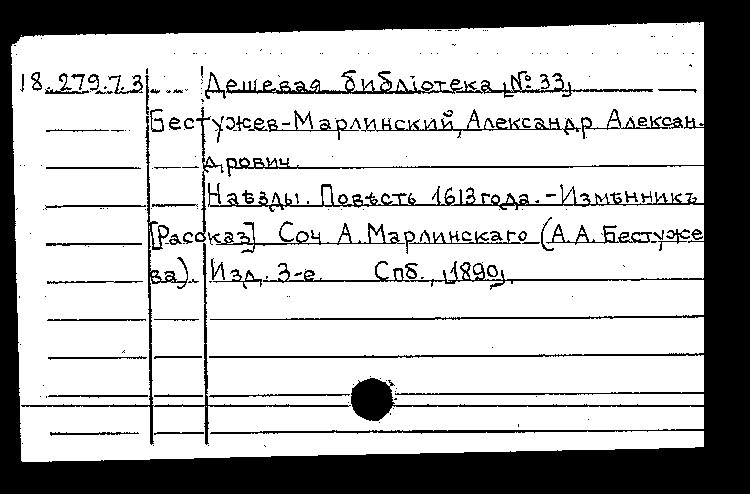 18.279.7.3 Дешевая библіотека № 33
Бестужев-Марлинский, Александр Алексан-
дрович.
Наѣзды. Повѣсть 1613 года. - Измѣнникъ
[Рассказ] Соч А. Марлинскаго (А.А. Бестуже
ва). Изд. 3-е. Спб., 1890.